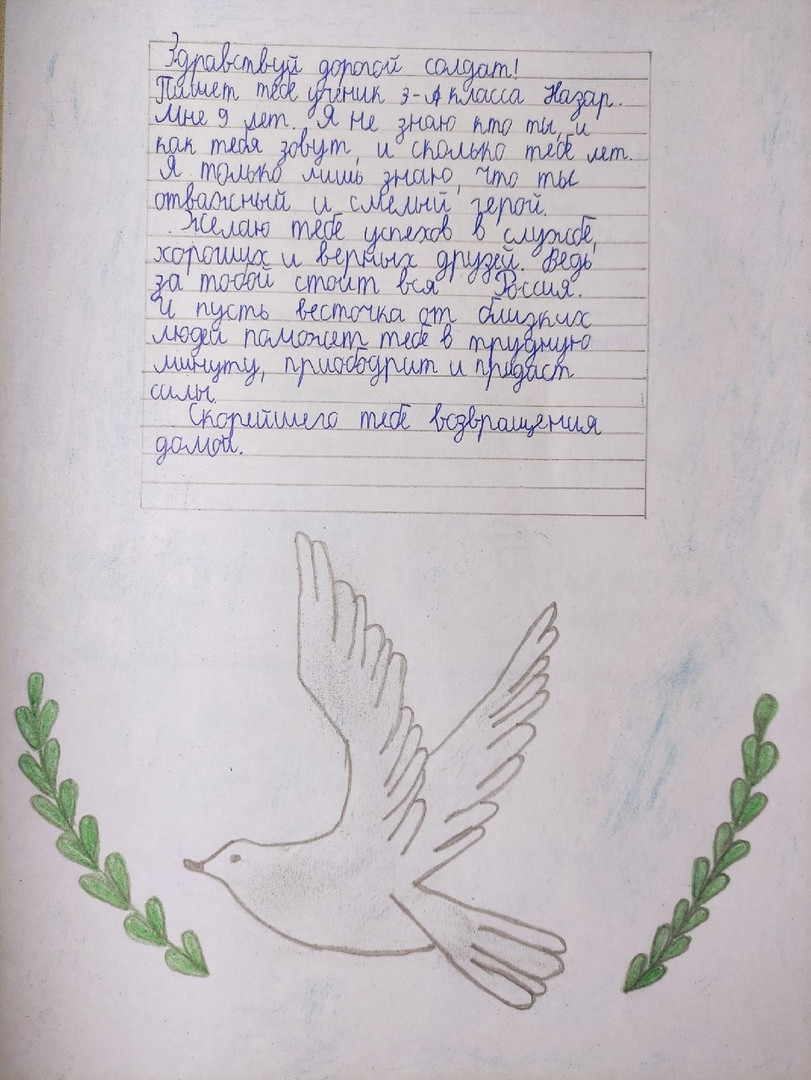 Здравствуй дорогой солдат!
Пишет тебе ученик 3-А класса Назар.
Мне 9 лет. Я не знаю кто ты, и
как тебя зовут, и сколько тебе лет.
Я только лишь знаю, что ты
отважный и смелый герой.
Желаю тебе успехов в службе,
хороших и верных друзей. Ведь
за тобой стоит вся Россия.
И пусть весточка от близких
людей паможет тебе в трудную
минуту, приободрит и придаст
силы.
Скорейшего тебе возвращения
домой.